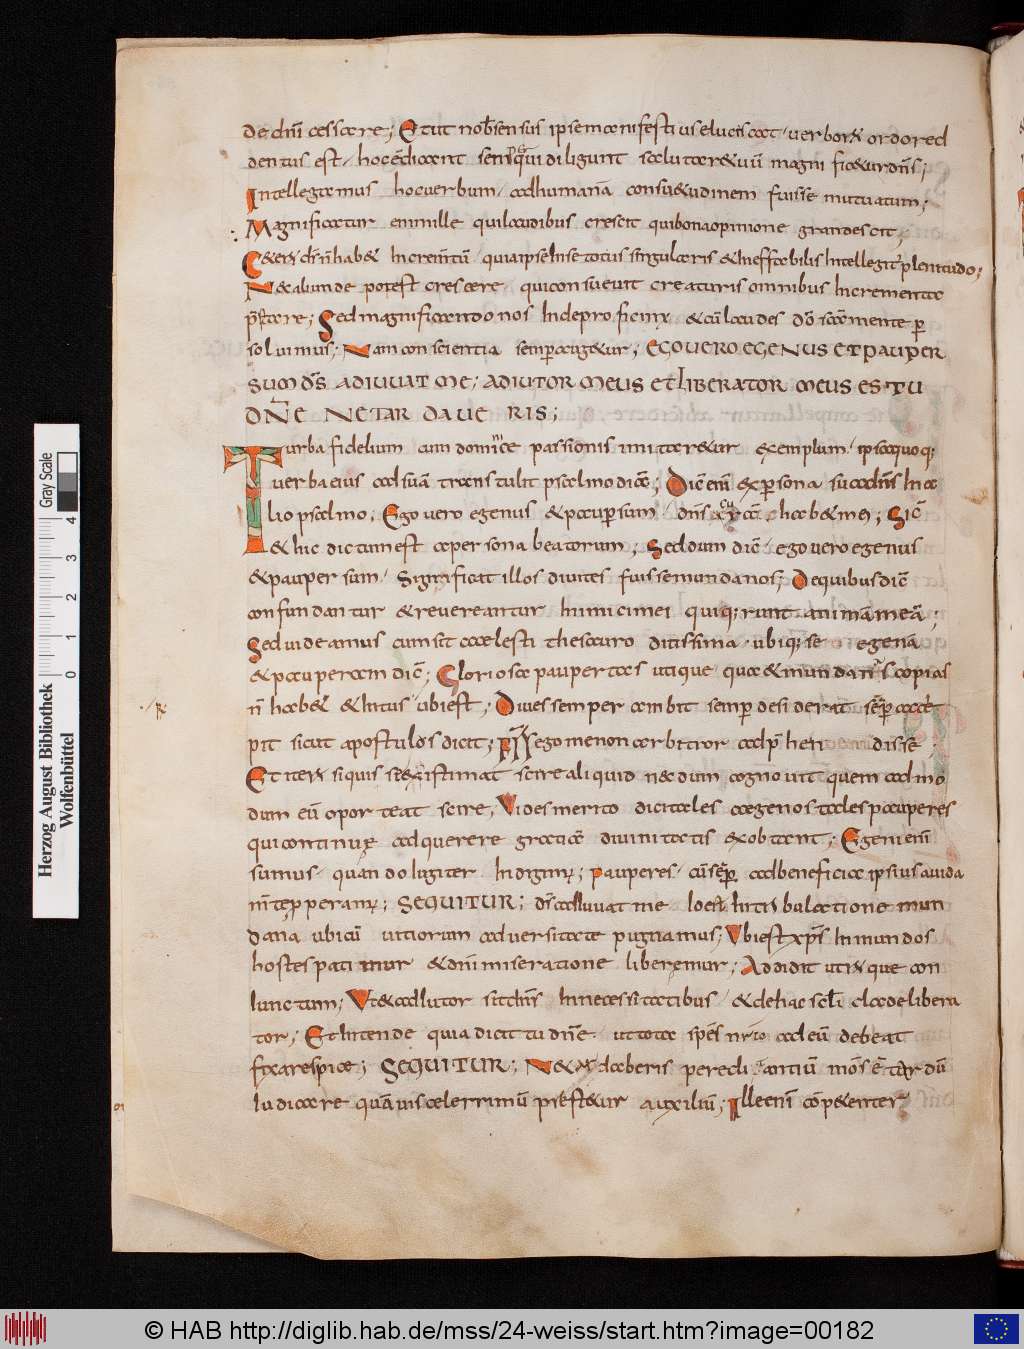 de dn̄i cessare; Et ut nob̄ sensus ipse manifestius elucescat · verborū ordo red
dentus est · hoc &dicant semp̄ qui diligunt salutare tuū magnificetur dn̄s;
Intellegamus hoc verbum · ad humanā consuetudinem fuisse mutuatum;
Magnificatur enim ille qui laudibus crescit qui bona opinione grandescit,
Ceterū dn̄s n̄ habet incrementū · quia ipse in se totus singularis & ineffabilis intellegit plenitudo;
Nec abunde potest crescere · qui consuevit creaturis omnibus incrementa
p̄stare; Sed magnificando nos inde proficimꝰ & cū laudes dō s̄ca mente p̄
solvimus; Nam conscientia semp augetur; EGO VERO EGENUS ET PAUPER
SUM D̄S ADIUVAT ME; ADIUTOR MEUS ET LIBERATOR MEUS ES TU
DN̄E NE TARDAVERIS;
Turba fidelium cum dominicae passionis imitaretur exemplum · ipsa quoq;
verba eius ad suā transtulit psalmodiā; Dic̄ enī ex persona sua dn̄s in a
lio psalmo; Ego vero egenus & pauper sum dn̄s curā habet mei; Sic̄
& hic dictum est a persona beatorum; Sed dum dic̄ · ego vero egenus
& pauper sum · significat illos divites fuisse mundanos; De quibus dic̄
confundantur & revereantur inimici mei qui q̄runt animā meā;
Sed videamus cum sit caelesti thesauro ditissima · ubiq; se egenā
& pauperam dic̄; Gloriosa paupertas utique quae & mundanas copias
n̄ habet & intus ubi est; Dives semper ambit semp desiderat sēp acce
pit sicut apostulus dicit; Frs̄ ego me non arbitror adp̄hendisse ·
Et iterū si quis se existimat scire aliquid necdum cognovit quem admo
dum eū oporteat scire, Vides merito dici tales egenos tales pauperes
qui continuae adquerere gratiā divinitatis exobtant; Egeni enī
sumus · quando iugiter indigimꝰ; Pauperes · cū sēp ad beneficia ipsius avida
m̄te p̄peramꝰ; SEQUITUR; D̄s adiuvat me loē in tribulatione mun
dana ubi cū vitiorum adversitate pugnamus; Vbi est xp̄s in mundos
hostes patimur & dn̄i miseratione liberemur; Addidit utrūque con
iunctum; Vt & adiutor sit dn̄s in necessitatibus · & de hac scl̄i clade libera
tor; Et intende quia dicit tu dn̄e · ut tota spēs nr̄a ad eū debeat
fixa respice; SEQUITUR; Ne tardaveris pereclitantiū mōs ē tardū
iudicare quāvis celerrimū prestetur auxiliū; Ille enī cōpetenter
Herzog August Bibliothek
Wolfenbüttel
0 1 2 3 4
Gray Scale
© HAB http://diglib.hab.de/mss/24-weiss/start.htm?image=00182